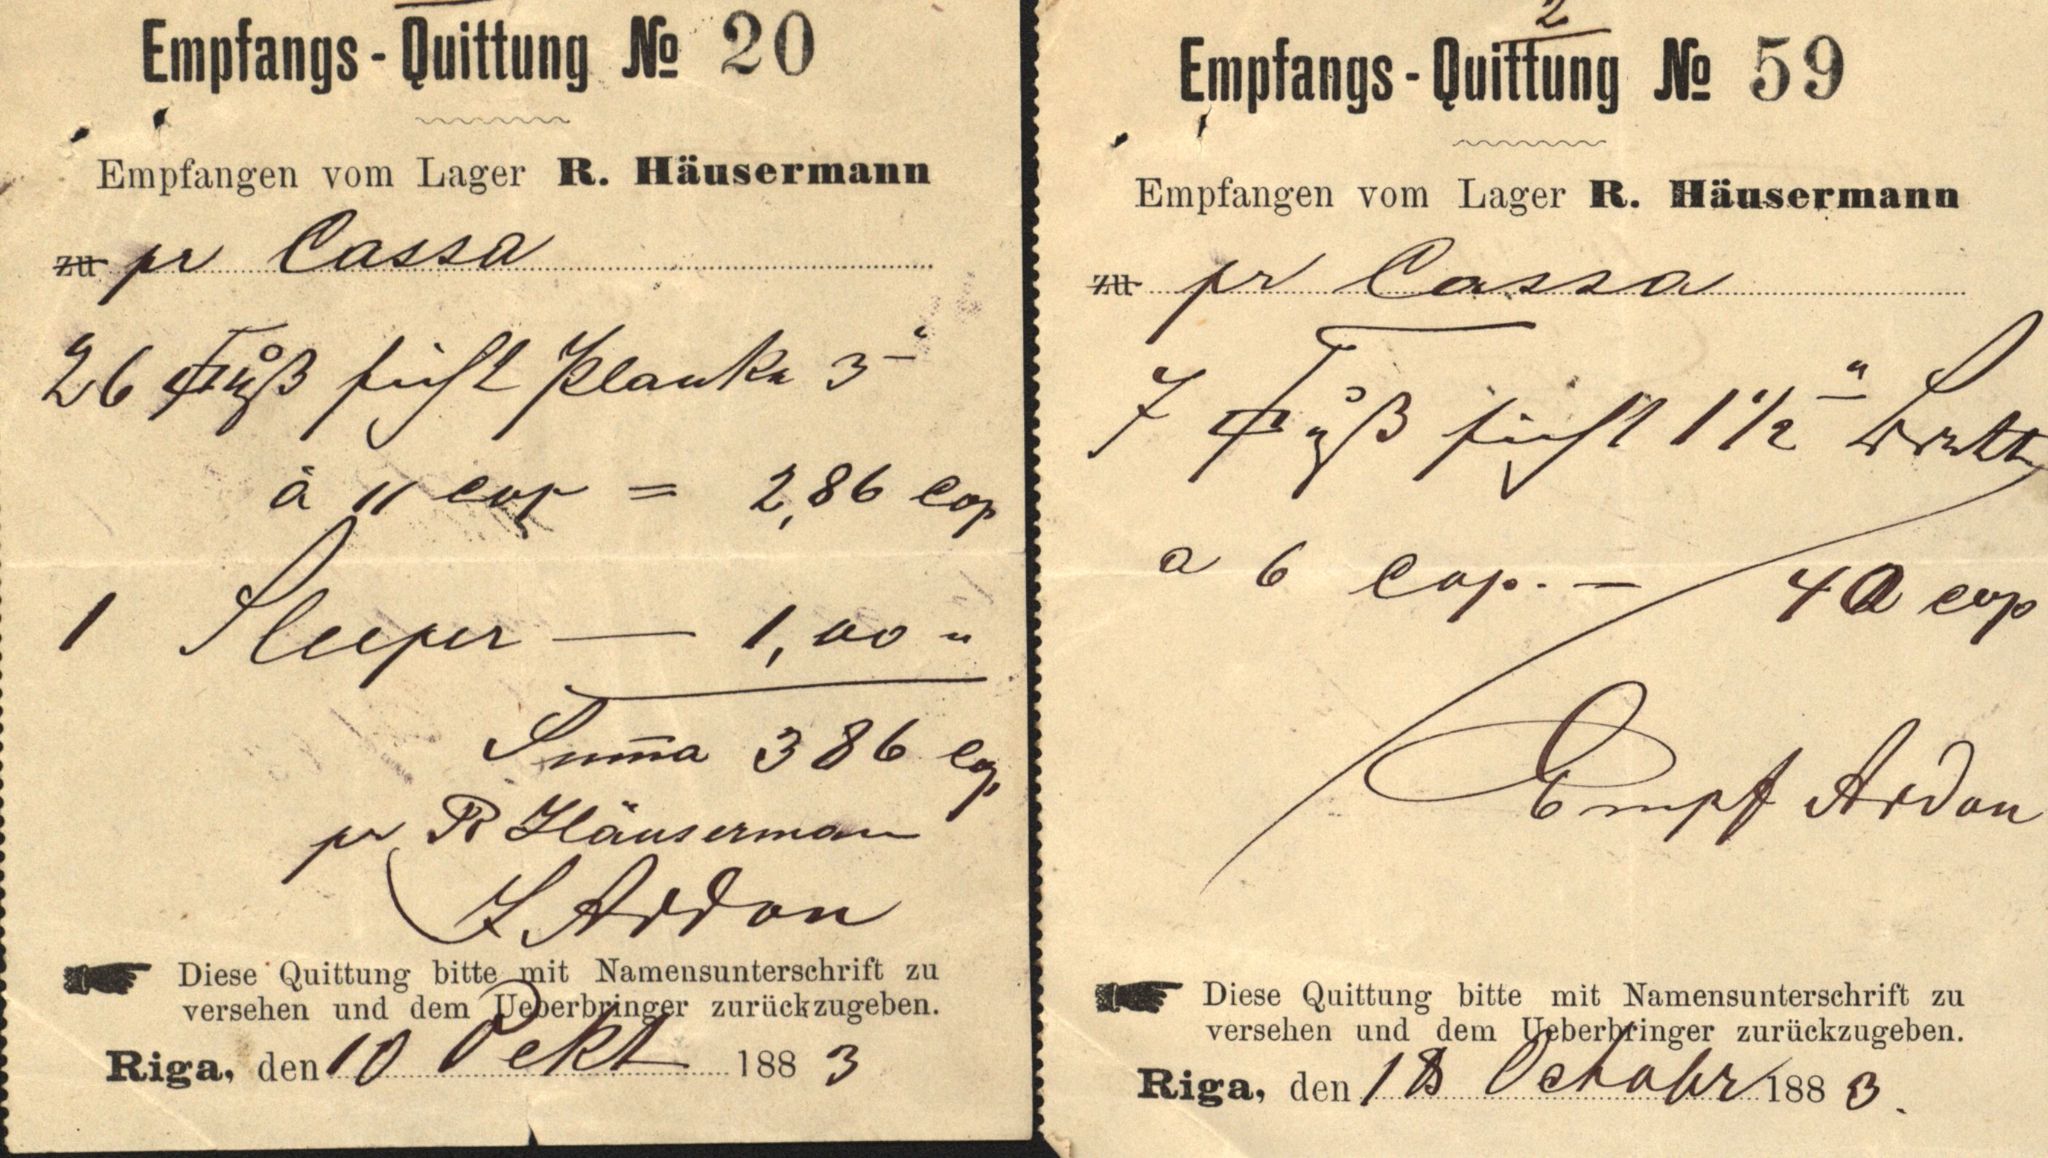 Empfangs-Quittung № 20
Empfangen vom Lager R. Häusermann
zu pr Cassa
26 Fuß ficht Planke 3"
à 11 cop = 2,86 Cop
1 Sleeper — 1,00 "
Sum̅a 3 86 Cop
pr R Häusermann
J Ardon
Diese Quittung bitte mit Namensunterschrift zu
versehen und dem Ueberbringer zurückzugeben.
Riga, den 10 Oekt 1883
2
Empfangs-Quittung № 59
Empfangen vom Lager R. Häusermann
zu pr Cassa
7 Fuß ficht 1 1/2"
a 6 Cop. — 40 cop
Empf Ardon
Diese Quittung bitte mit Namensunterschrift zu
versehen und dem Ueberbringer zurückzugeben.
Riga, den 18 Octobr 1883.